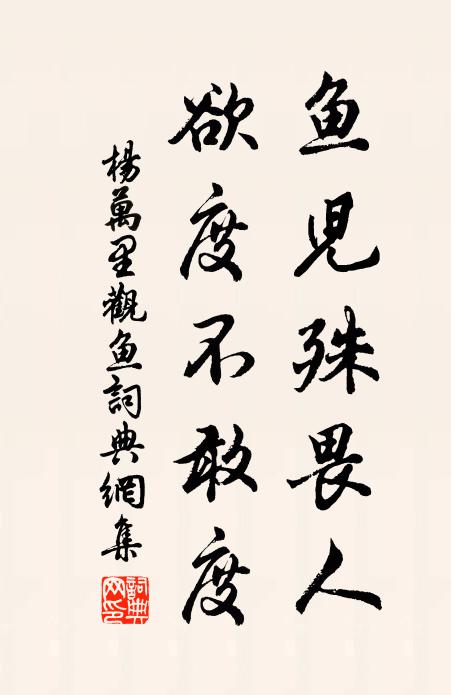 鱼児殊畏人
欲度不敢度
楊萬里觀鱼詞典網集
詞典网印